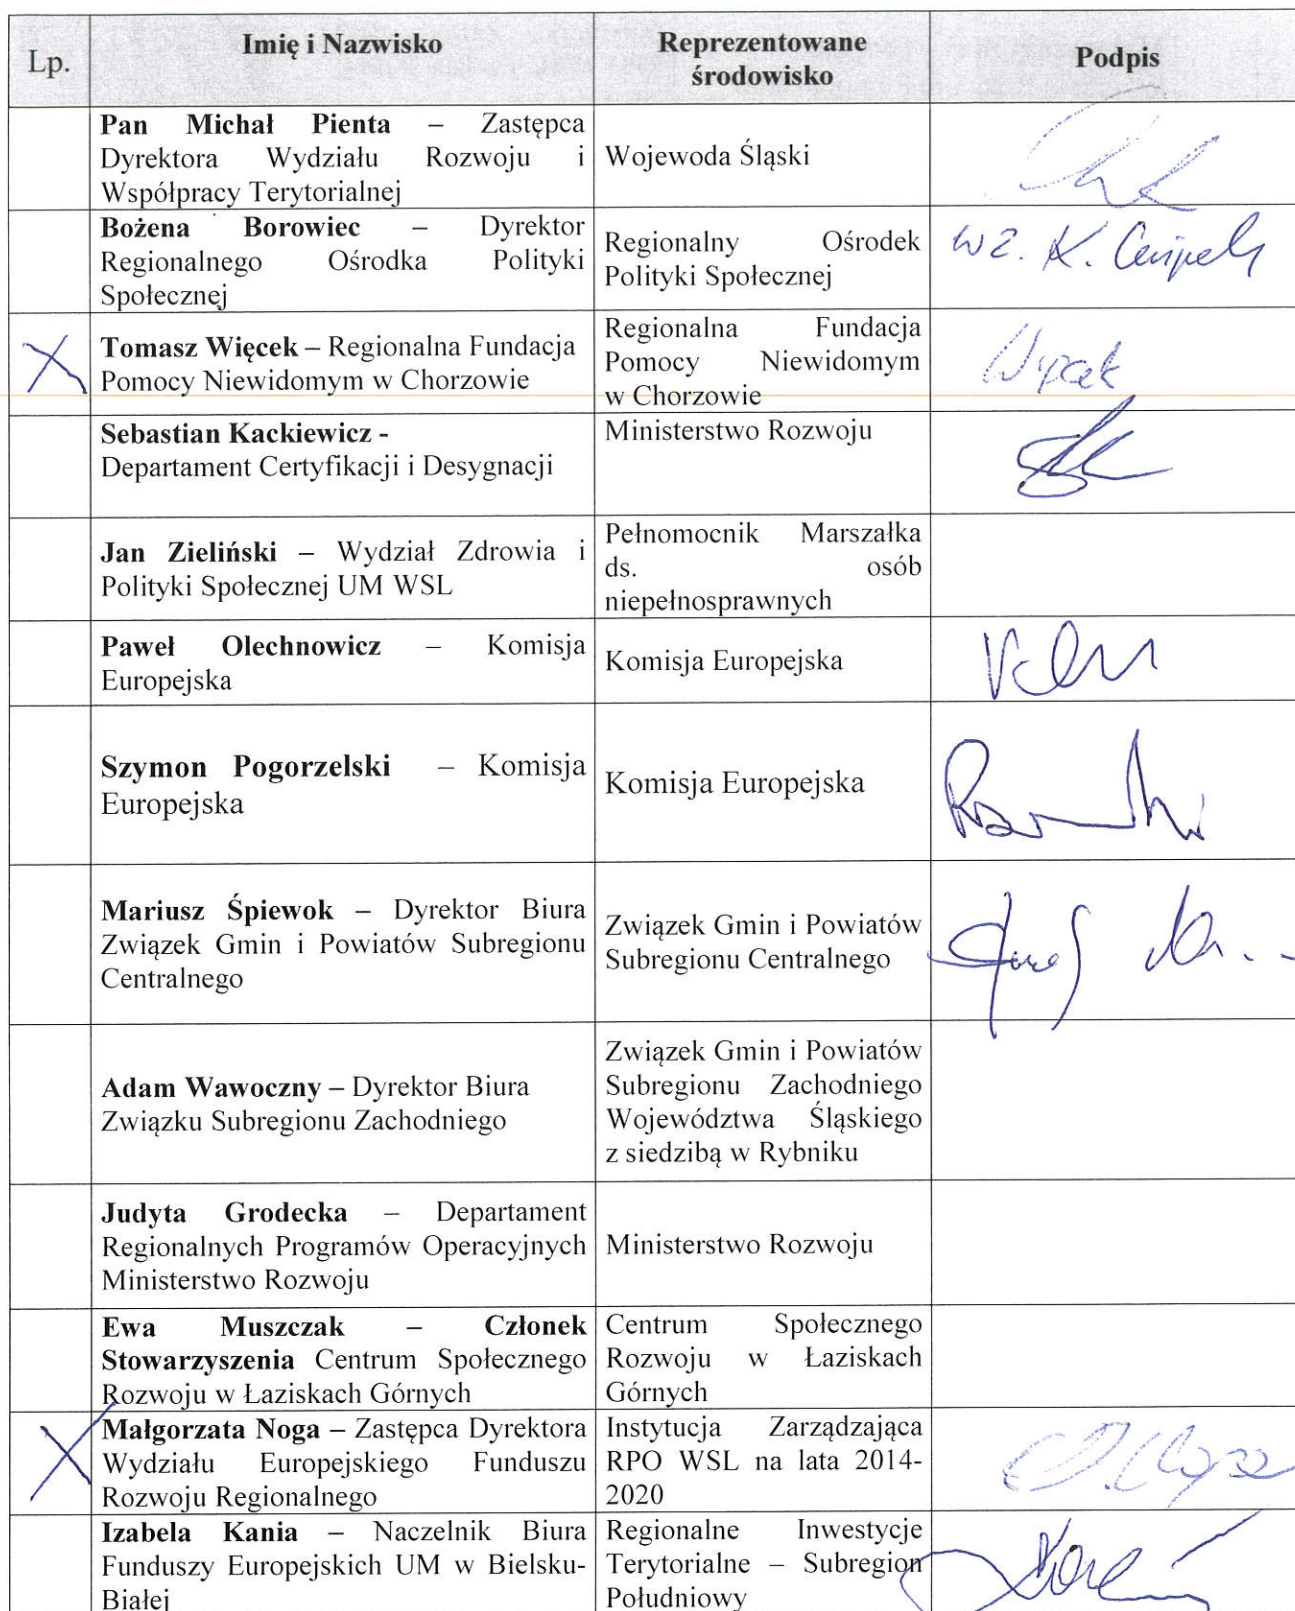 Lp.
Imię i Nazwisko
Reprezentowane
środowisko
Podpis
Pan Michał Pienta – Zastępca
Dyrektora Wydziału Rozwoju i
Współpracy Terytorialnej
Wojewoda Śląski
Bożena Borowiec – Dyrektor
Regionalnego Ośrodka Polityki
Społecznej
Regionalny Ośrodek
Polityki Społecznej
wz. K.
X
Tomasz Więcek – Regionalna Fundacja
Pomocy Niewidomym w Chorzowie
Regionalna Fundacja
Pomocy Niewidomym
w Chorzowie
Więcek
Sebastian Kackiewicz -
Departament Certyfikacji i Desygnacji
Ministerstwo Rozwoju
Jan Zieliński – Wydział Zdrowia i
Polityki Społecznej UM WSL
Pełnomocnik Marszałka
ds. osób
niepełnosprawnych
Paweł Olechnowicz – Komisja
Europejska
Komisja Europejska
Szymon Pogorzelski – Komisja
Europejska
Komisja Europejska
Mariusz Śpiewok – Dyrektor Biura
Związek Gmin i Powiatów Subregionu
Centralnego
Związek Gmin i Powiatów
Subregionu Centralnego
Adam Wawoczny – Dyrektor Biura
Związku Subregionu Zachodniego
Związek Gmin i Powiatów
Subregionu Zachodniego
Województwa Śląskiego
z siedzibą w Rybniku
Judyta Grodecka – Departament
Regionalnych Programów Operacyjnych
Ministerstwo Rozwoju
Ministerstwo Rozwoju
Ewa Muszczak – Członek
Stowarzyszenia Centrum Społecznego
Rozwoju w Łaziskach Górnych
Centrum Społecznego
Rozwoju w Łaziskach
Górnych
X
Małgorzata Noga – Zastępca Dyrektora
Wydziału Europejskiego Funduszu
Rozwoju Regionalnego
Instytucja Zarządzająca
RPO WSL na lata 2014-
2020
Izabela Kania – Naczelnik Biura
Funduszy Europejskich UM w Bielsku-
Białej
Regionalne Inwestycje
Terytorialne – Subregion
Południowy